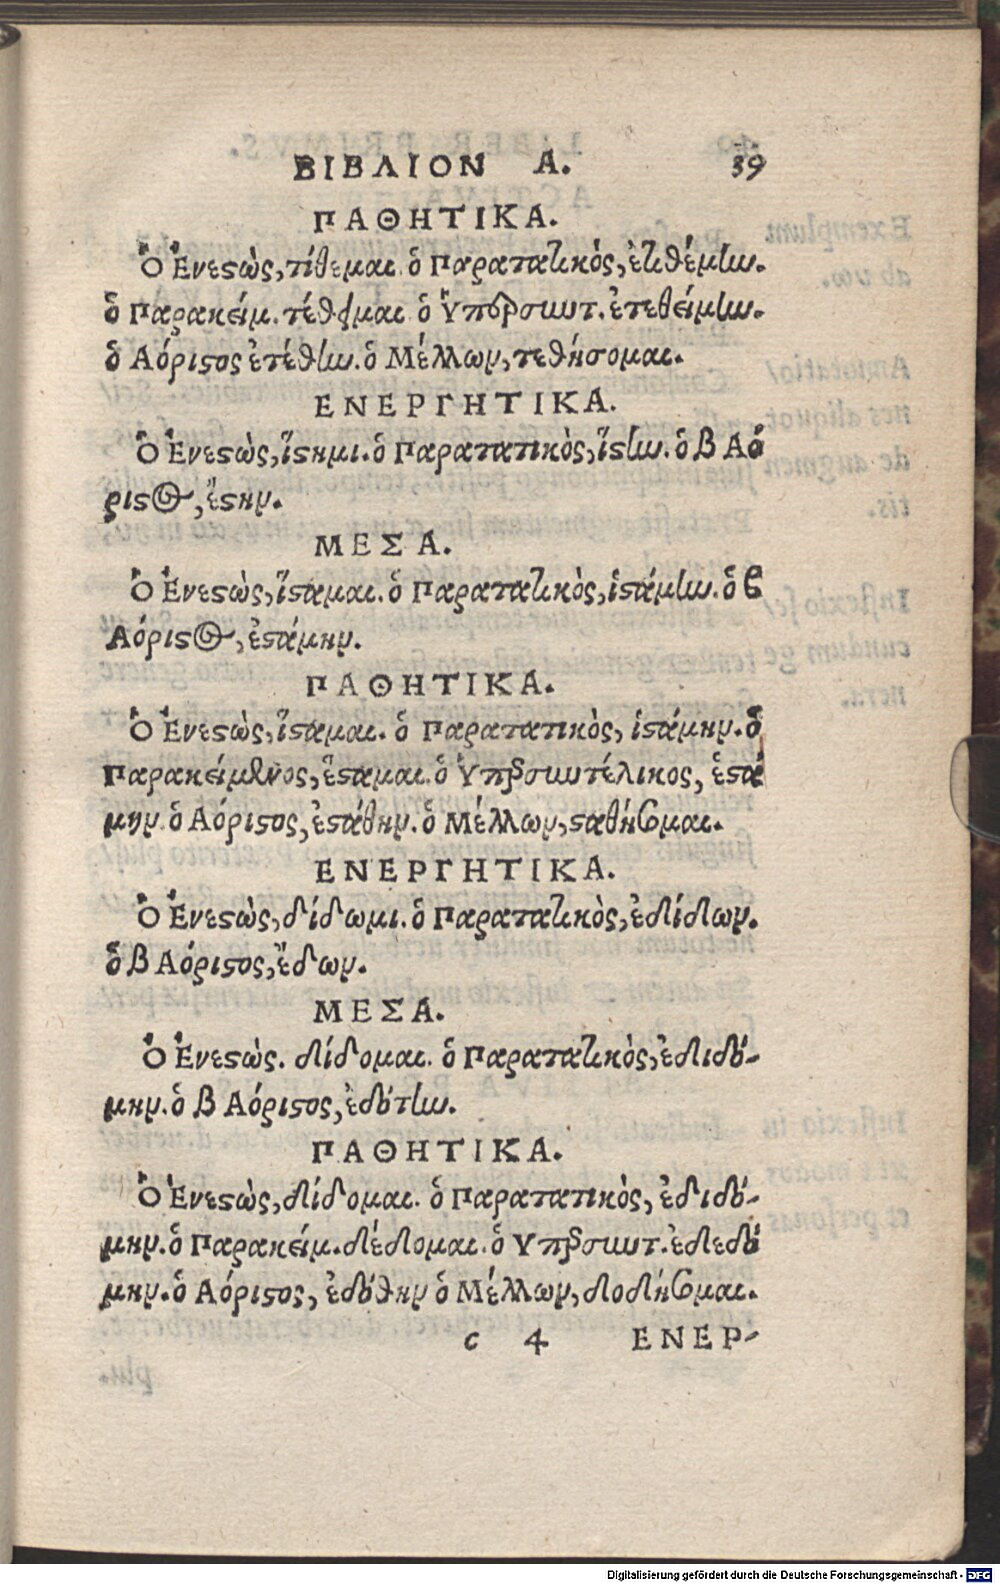 ΒΙΒΛΙΟΝ Α. 39
ΠΑΘΗΤΙΚΑ.
Ὁ Ἐνεϛὼς, τίθεμαι. ὁ Παρατατικὸς, ἐτιθέμην.
ὁ Παρακείμ. τέθειμαι ὁ Ὑπερσυντ. ἐτεθείμην.
ὁ Αόριϛος ἐτέθην. ὁ Μέλλων, τεθήσομαι.
ΕΝΕΡΓΗΤΙΚΑ.
Ὁ Ἐνεϛὼς, ἵϛημι. ὁ Παρατατικὸς, ἵϛην. ὁ β Αό
ριϛος, ἔϛην.
ΜΕΣΑ.
Ὁ Ἐνεϛὼς, ἵϛαμαι. ὁ Παρατατικὸς, ἱϛάμην. ὁ β
Αόριϛος, ἐϛάμην.
ΠΑΘΗΤΙΚΑ.
Ὁ Ἐνεϛὼς, ἵϛαμαι. ὁ Παρατατικὸς, ἱϛάμην. ὁ
Παρακείμενος, ἕϛαμαι. ὁ Ὑπερσυντέλικος, ἑϛά
μην. ὁ Αόριϛος, ἐϛάθην. ὁ Μέλλων, ϛαθήσομαι.
ΕΝΕΡΓΗΤΙΚΑ.
Ὁ Ἐνεϛὼς, δίδωμι. ὁ Παρατατικὸς, ἐδίδων.
ὁ β Αόριϛος, ἔδων.
ΜΕΣΑ.
Ὁ Ἐνεϛὼς. δίδομαι. ὁ Παρατατικὸς, ἐδιδό-
μην. ὁ β Αόριϛος, ἐδότην.
ΠΑΘΗΤΙΚΑ.
Ὁ Ἐνεϛὼς, δίδομαι. ὁ Παρατατικὸς, ἐδιδό-
μην. ὁ Παρακείμ. δέδομαι. ὁ Ὑπερσυντ. ἐδεδό
μην. ὁ Αόριϛος, ἐδόθην ὁ Μέλλων, δοδήσομαι.
c 4 ΕΝΕΡ-
Digitalisierung gefördert durch die Deutsche Forschungsgemeinschaft - DFG